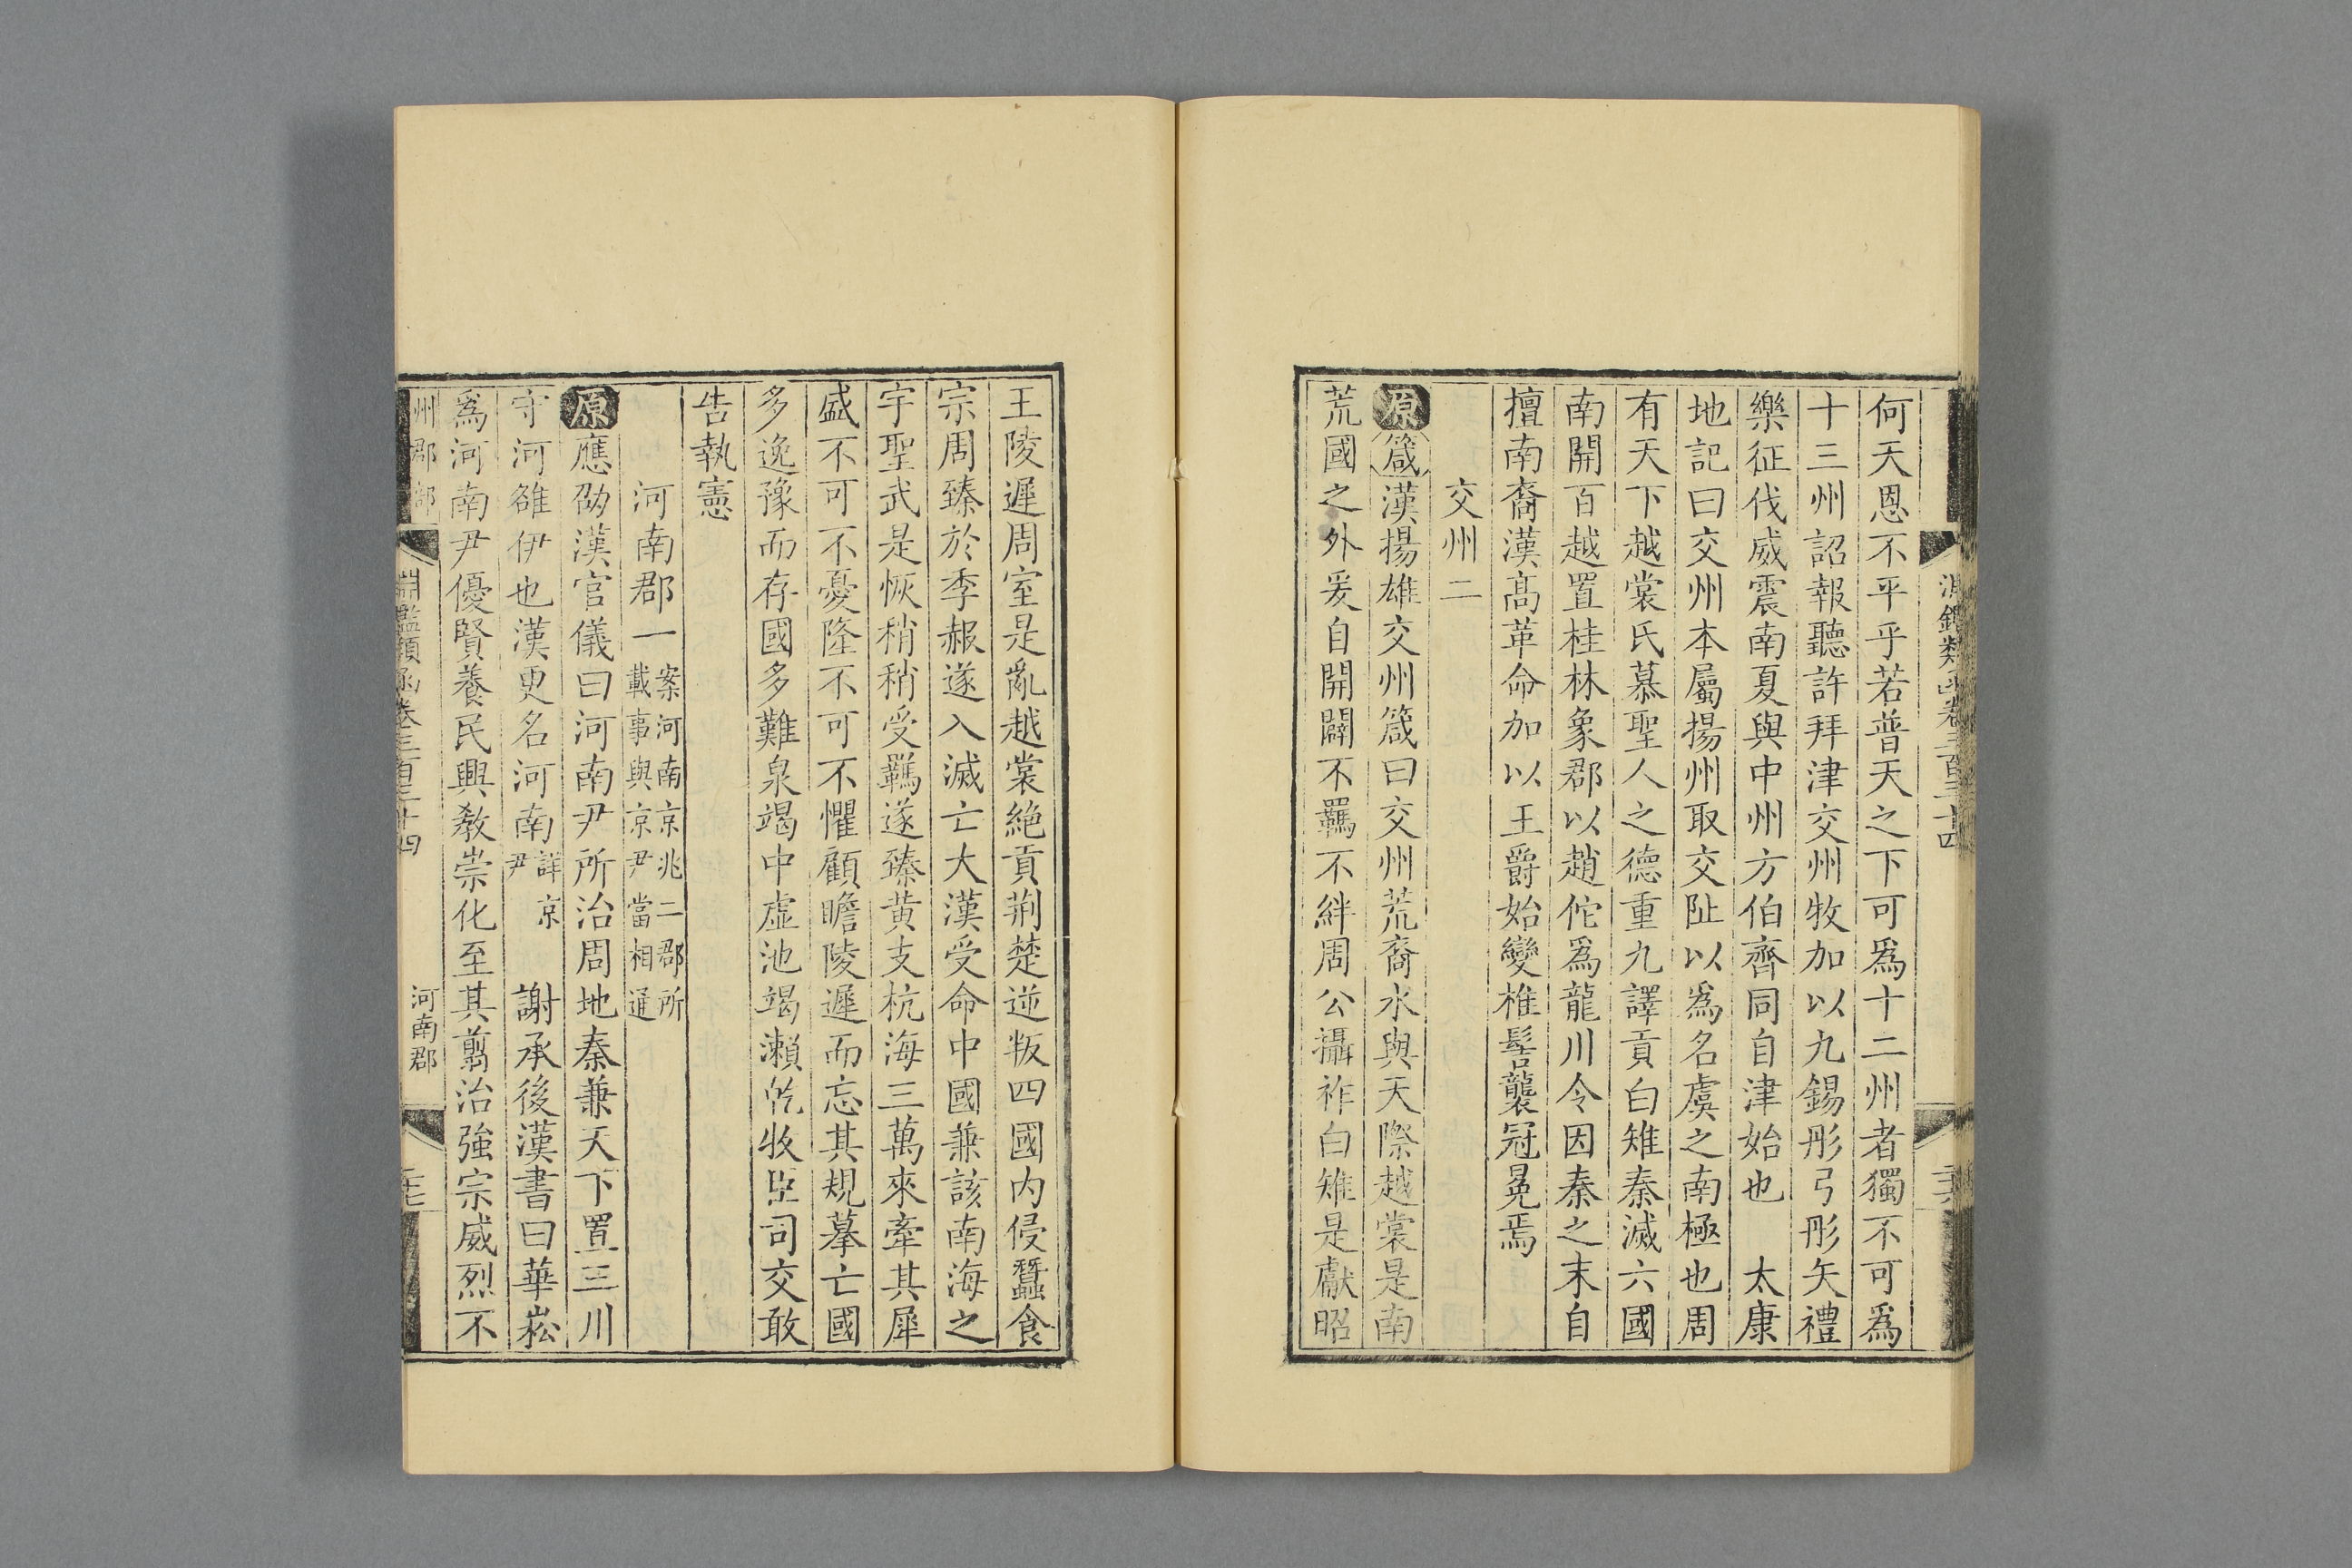 何天恩不平乎若普天之下可爲十二州者獨不可爲
十三州詔報聽許拜津交州牧加以九錫彤弓彤矢禮
樂征伐威震南夏與中州方伯齊同自津始也　太康
地記曰交州本屬揚州取交阯以爲名虞之南極也周
有天下越裳氏慕聖人之德重九譯貢白雉秦滅六國
南開百越置桂林象郡以趙佗爲龍川令因秦之末自
擅南裔漢高革命加以王爵始變椎髻襲冠冕焉
交州二
原箴漢揚雄交州箴曰交州荒裔水與天際越裳是南
荒國之外爰自開闢不羈不絆周公攝祚白雉是獻昭
王陵遲周室是亂越裳絕貢荆楚逆叛四國内侵蠶食
宗周臻於季赧遂入滅亡大漢受命中國兼該南海之
宇聖武是恢稍稍受羈遂臻黄支杭海三萬來牽其犀
盛不可不憂隆不可不懼顧瞻陵遲而忘其規摹亡國
多逸豫而存國多難泉竭中虛池竭瀨乾牧臣司交敢
告執憲
河南郡一案河南京兆二郡所載事與京尹當相通
原應劭漢官儀曰河南尹所治周地秦兼天下置三川
守河雒伊也漢更名河南詳京尹　謝承後漢書曰華崧
爲河南尹優賢養民興教崇化至其翦治強宗威烈不
州郡部
淵鑑類函卷三百三十四
河南郡